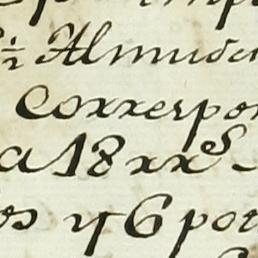 ½ Almude
Correspon
a 18 rr^s
os y 6 pot